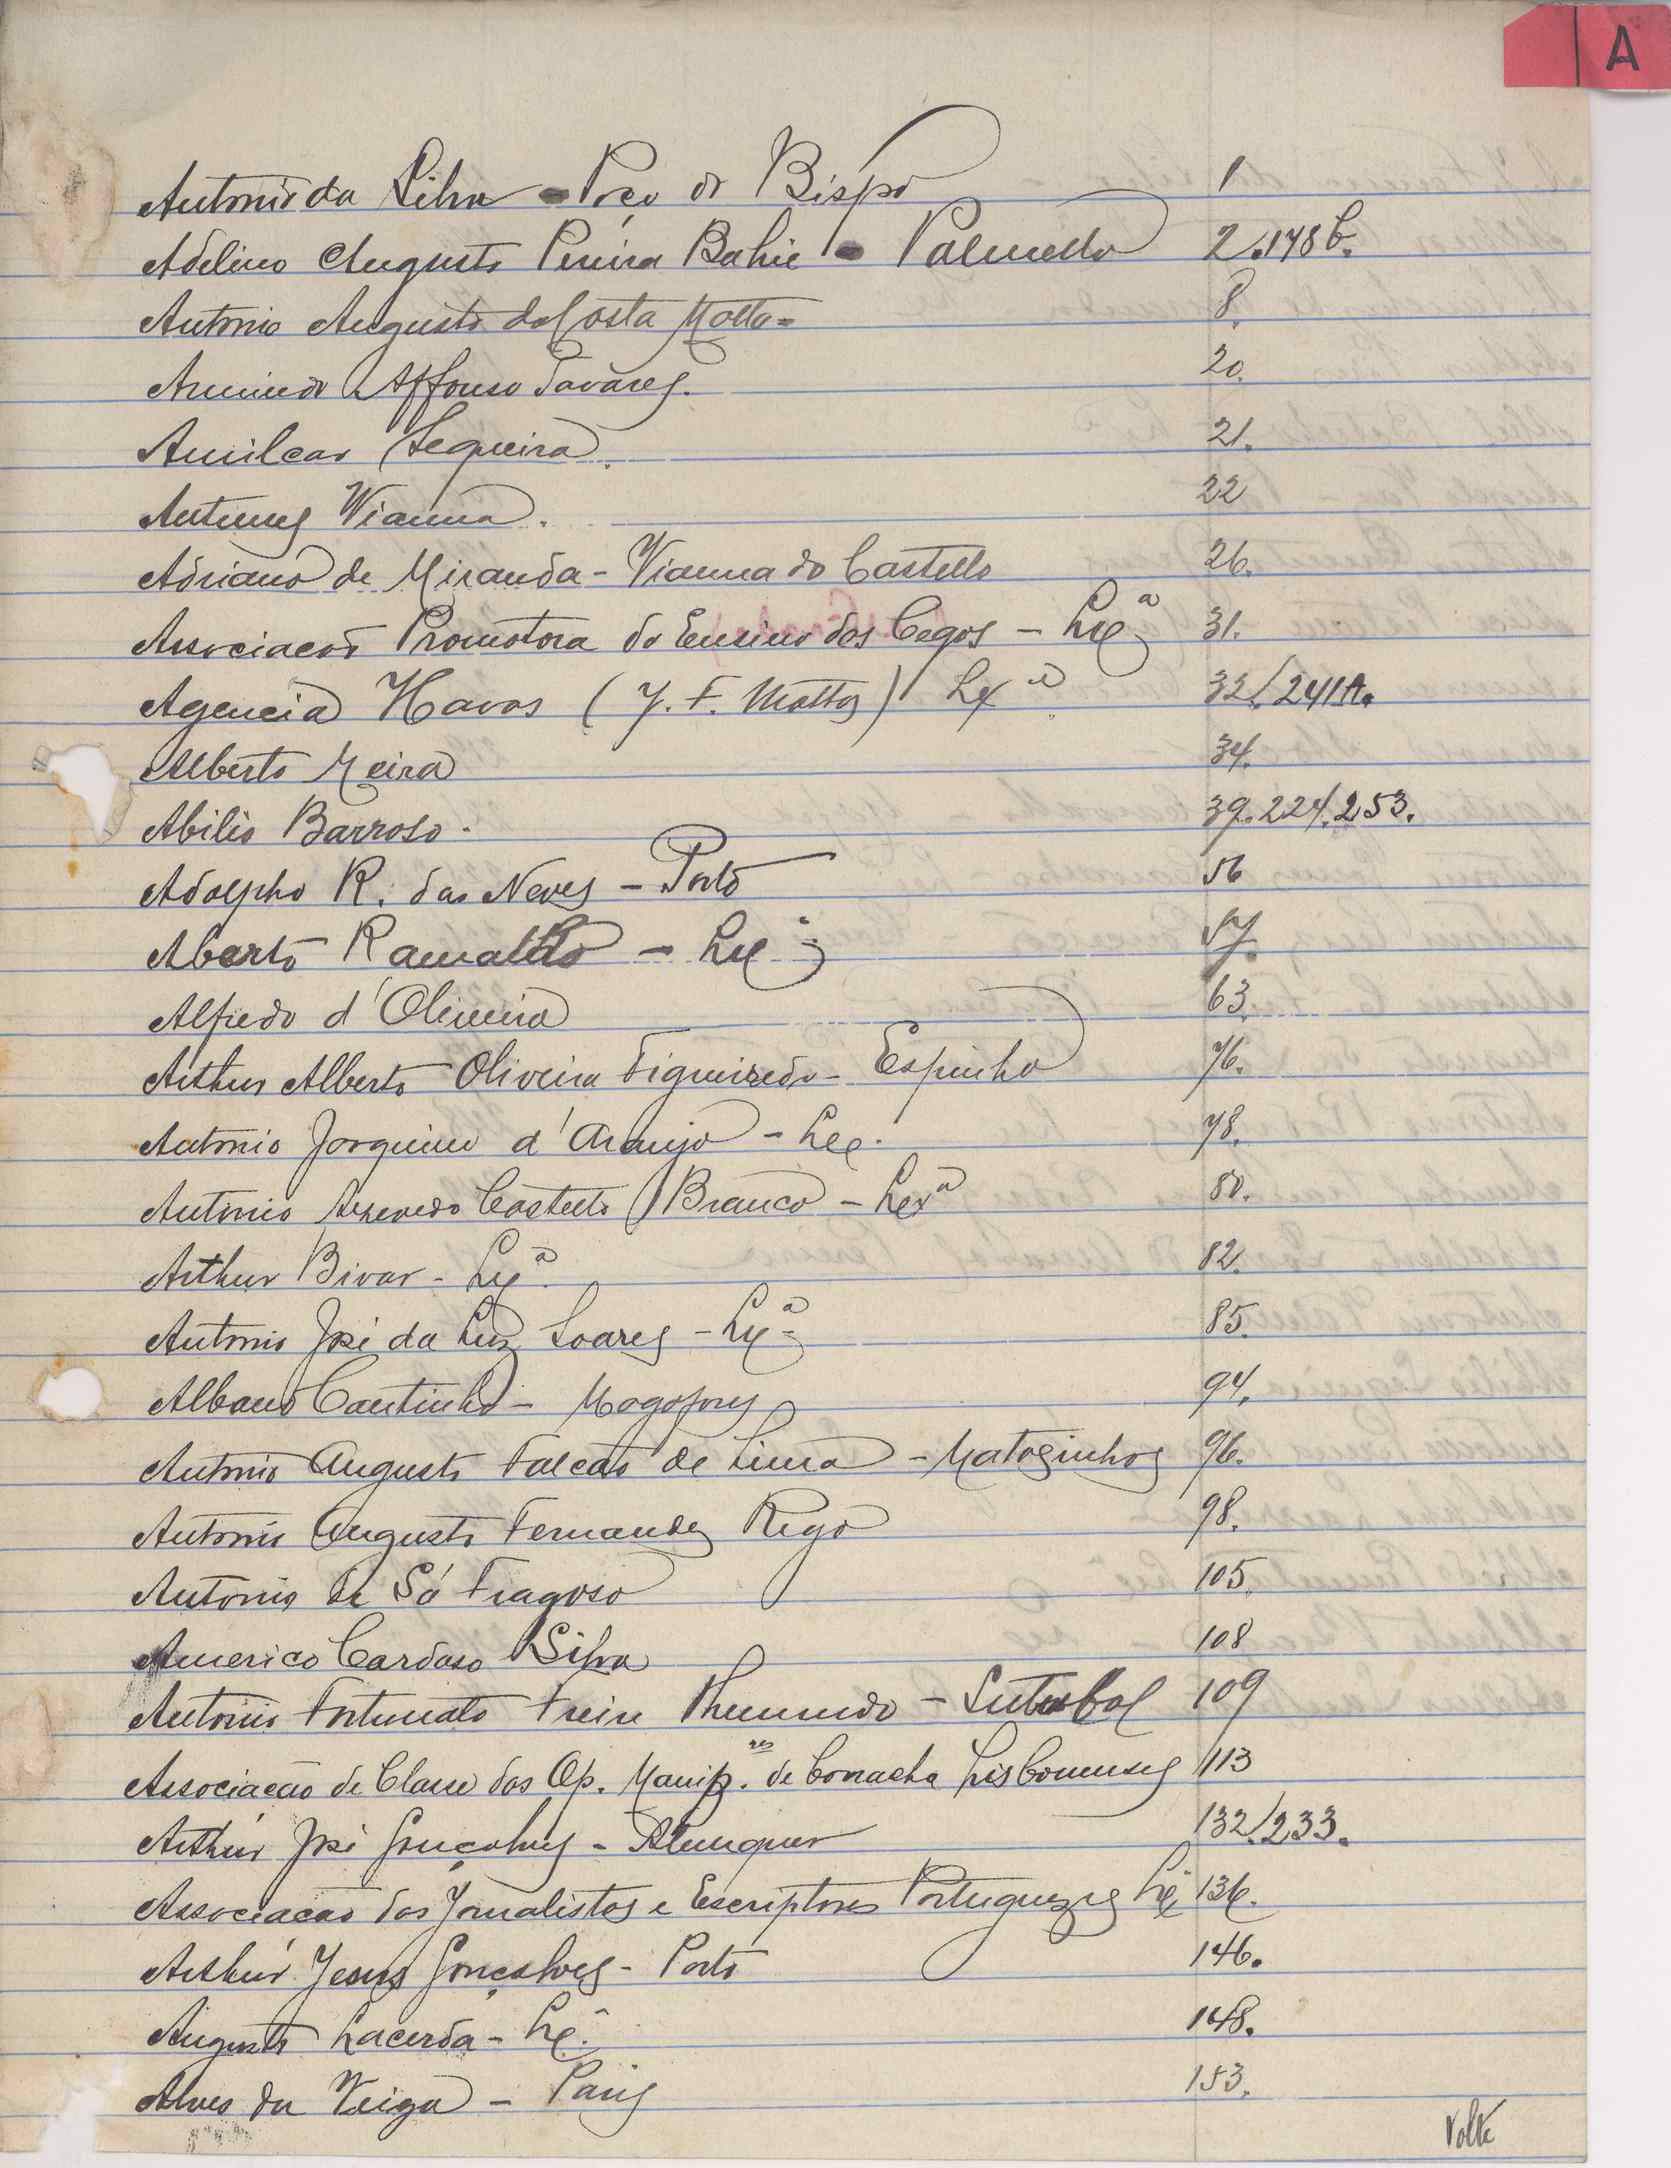 A
Antonio da Silva - Poço do Bispo 1
Adelino Augusto Pereira Bahia - Palmella 2.178 b.
Antonio Augusto da Costa Motta = 8.
Armindo Affonso Tavares. 20.
Amilcar Sequeira. 21.
Antunes Vianna. 22
Adriano de Miranda - Vianna do Castello 26.
Associação Promotora do Ensino dos Cegos - Lxª 31.
Agencia Havas (J. F. Mattos) Lxª 32./241A.
Alberto Meira 34.
Abilio Barroso. 39.224.253.
Adolpho R. das Neves - Porto 56
Aberto Ramalho - Lxª 57.
Alfredo d'Oliveira 63.
Arthur Alberto Oliveira Figueiredo - Espinho 76.
Antonio Jorquino d'Araujo - Lx. 78.
Antonio Azevedo Castello Branco - Lxª 80.
Arthur Bivar - Lxª. 82.
Antonio José da Luz Soares - Lxª 85.
Albano Coutinho - Mogofores 94.
Antonio Augusto Falcão de Lima - Matosinhos 96.
Antonio Augusto Fernandes Rego 98.
Antonio de Sá Fragoso 105.
Americo Cardoso Silva 108
Antonio Fortunato Freire - Setubal 109
Associação de Classe dos Op. Manip.res de Borracha Lisbonenses 113
Arthur José Gonçalves - Alemquer 132./233.
Associação dos Jornalistas e Escriptores Portuguezes Lxª 136.
Arthur Jesus Gonçalves - Porto 146.
Augusto Lacerda - Lxª. 148.
Alves da Veiga - Paris 153.
Volte